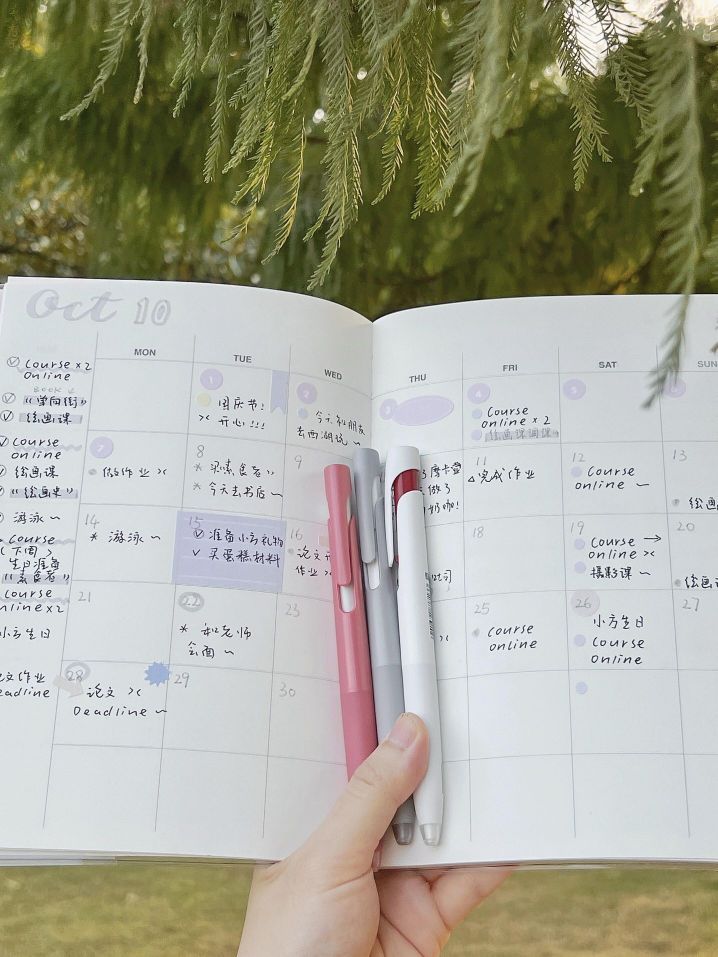 Oct 10
MON
TUE
WED
THU
FRI
SAT
SUN
Course × 2
Online
BOOK
《单向街》
绘画课
Course
online
绘画课
《绘画史》
游泳~
Course
(下周)
生日准备
《素食者》
Course
online × 2
小方生日
论文作业
Deadline
1
国庆节!
开心!!!
2
今天和朋友
去西湖玩~
3
4
Course
online × 2
绘画课调课
5
7
做作业
8
* 买素食者
* 今天去书店~
9
摩卡壶
做了
奶咖!
11
完成作业
12
Course
online ~
13
14
* 游泳~
15
准备小方礼物
买蛋糕材料
16
论文
作业
吐司
18
19
Course →
online
摄影课~
20
绘画
21
22
* 和老师
会面~
23
25
Course
online
26
小方生日
Course
Online
27
28
论文
Deadline ~
29
30